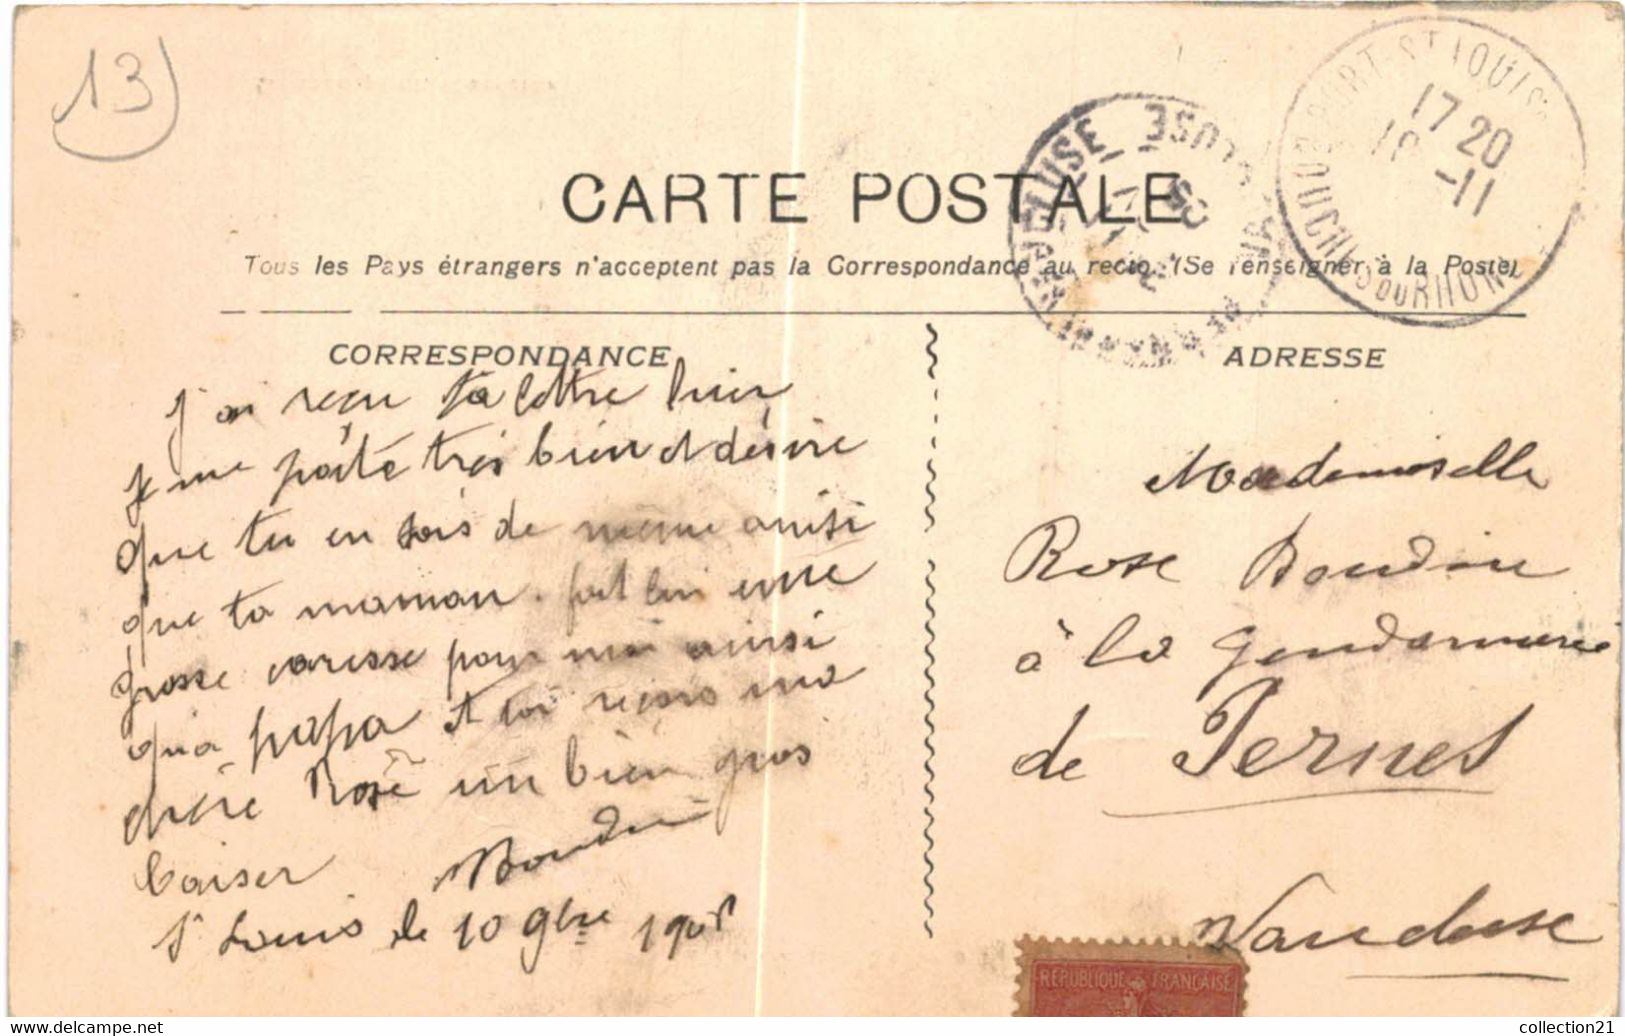 13
CARTE POSTALE
Tous les Pays étrangers n'acceptent pas la Correspondance au recto. (Se renseigner à la Poste)
PORT-ST LOUIS
BOUCHES DU RHONE
17 20
10 -11
VAUCLUSE
CORRESPONDANCE
J'ai reçu ta lettre hier
Je me porte très bien et désire
que tu en sois de même ainsi
que ta maman. fait lui une
grosse caresse pour moi ainsi
qu'a papa et toi reçois ma
chère Rose un bien gros
baiser
Boudin
St Louis le 10 9bre 1905
ADRESSE
Mademoiselle
Rose Boudin
à la Gendarmerie
de Pernes
Vaucluse
REPUBLIQUE FRANCAISE
collection21